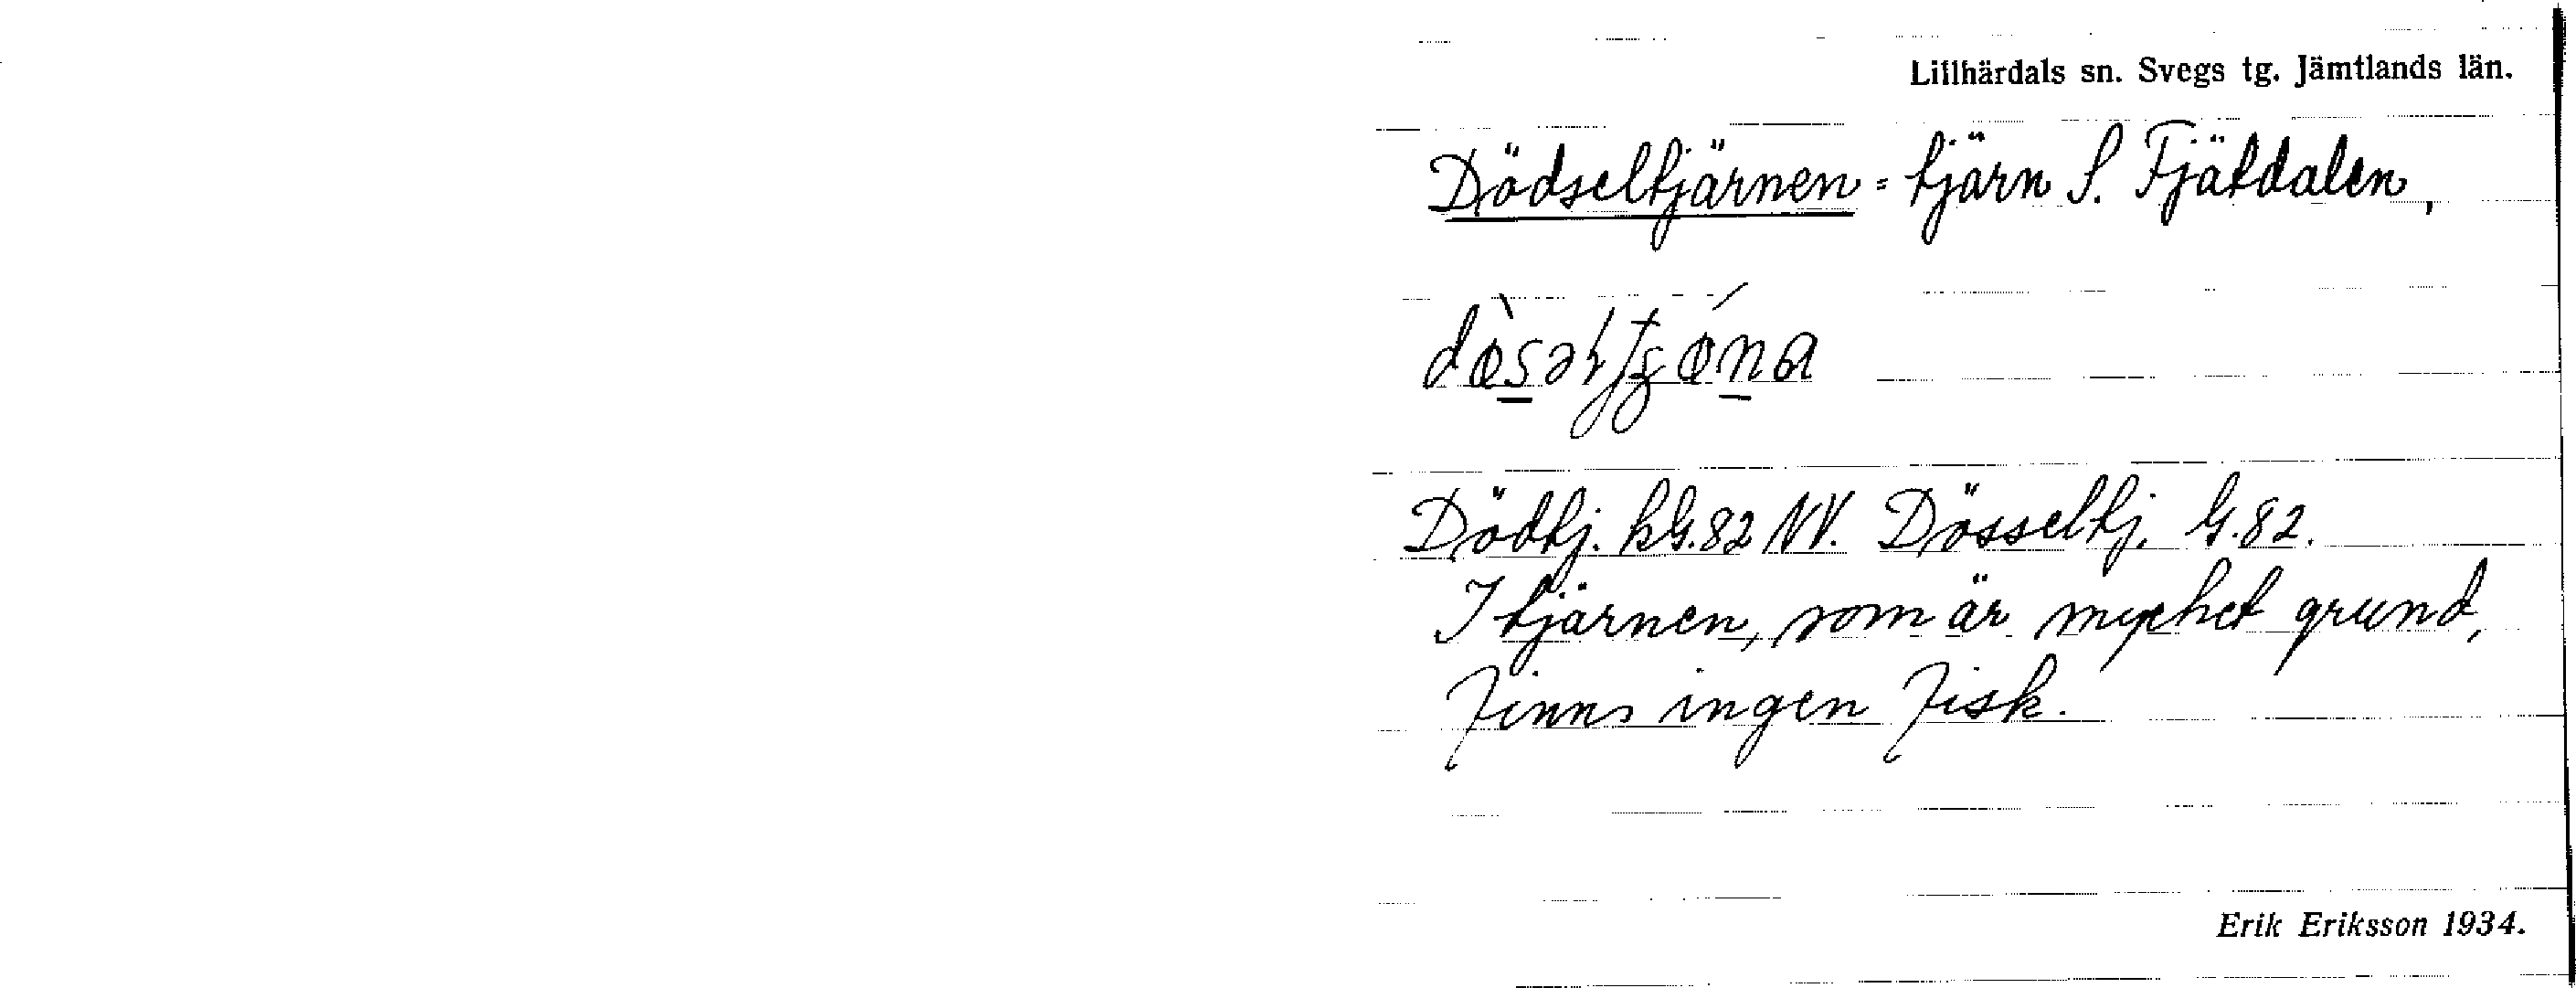 Lillhärdals sn. Svegs tg. Jämtlands län.
Dödseltjärnen = tjärn S. Fjätdalen,
Dödtj. kG.82 NV. Dösseltj. G.82.
I tjärnen, som är mycket grund,
finns ingen fisk.
Erik Eriksson 1934.